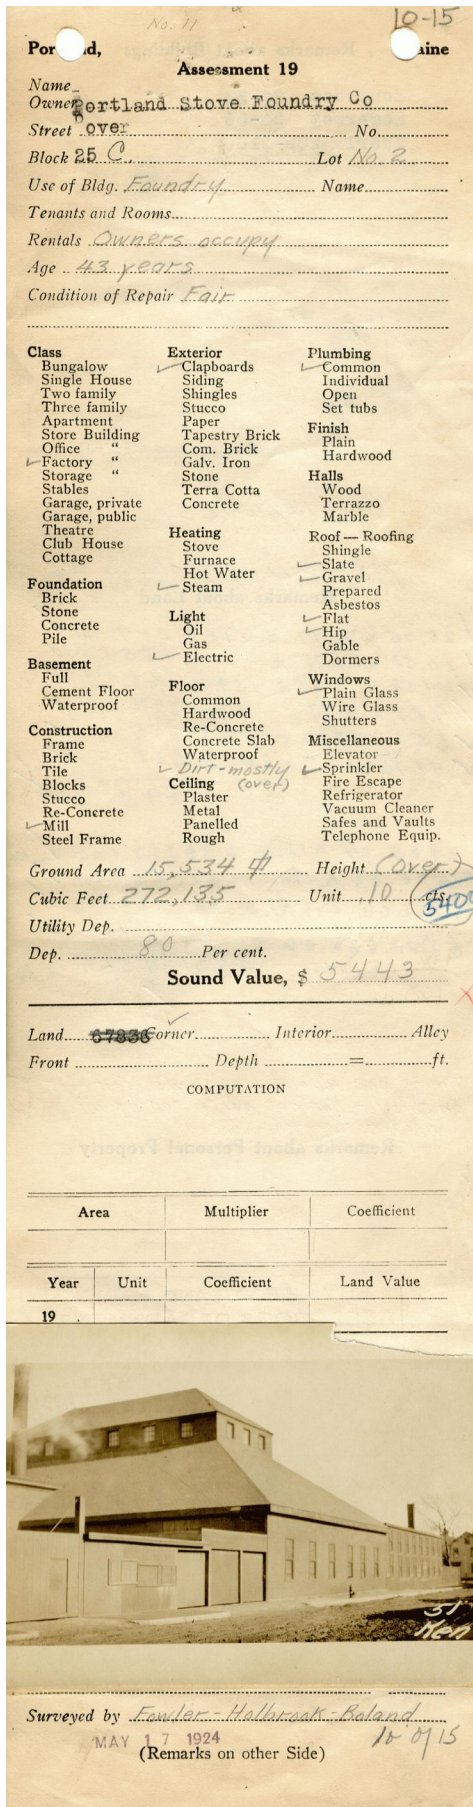 No. 11
10-15
Por    d,    aine
Assessment 19
Name
Owner Portland Stove Foundry Co
Street over No.
Block 25 C. Lot No. 2
Use of Bldg. Foundry Name
Tenants and Rooms
Rentals Owners occupy
Age 43 years
Condition of Repair Fair
Class
Bungalow
Single House
Two family
Three family
Apartment
Store Building
Office "
Factory "
Storage "
Stables
Garage, private
Garage, public
Theatre
Club House
Cottage
Foundation
Brick
Stone
Concrete
Pile
Basement
Full
Cement Floor
Waterproof
Construction
Frame
Brick
Tile
Blocks
Stucco
Re-Concrete
Mill
Steel Frame
Exterior
Clapboards
Siding
Shingles
Stucco
Paper
Tapestry Brick
Com. Brick
Galv. Iron
Stone
Terra Cotta
Concrete
Heating
Stove
Furnace
Hot Water
Steam
Light
Oil
Gas
Electric
Floor
Common
Hardwood
Re-Concrete
Concrete Slab
Waterproof
Dirt-mostly
(over)
Ceiling
Plaster
Metal
Panelled
Rough
Plumbing
Common
Individual
Open
Set tubs
Finish
Plain
Hardwood
Halls
Wood
Terrazzo
Marble
Roof — Roofing
Shingle
Slate
Gravel
Prepared
Asbestos
Flat
Hip
Gable
Dormers
Windows
Plain Glass
Wire Glass
Shutters
Miscellaneous
Elevator
Sprinkler
Fire Escape
Refrigerator
Vacuum Cleaner
Safes and Vaults
Telephone Equip.
Ground Area 15,534 Height (over)
Cubic Feet 272,135 Unit .10 cts.
5400
Utility Dep.
Dep. 80 Per cent.
Sound Value, $ 5443
Land Corner Interior Alley
Front Depth = ft.
COMPUTATION
Area Multiplier Coefficient
Year Unit Coefficient Land Value
19
51
Ken
Surveyed by Fowler-Holbrook-Boland
MAY 17 1924
10 of 15
(Remarks on other Side)